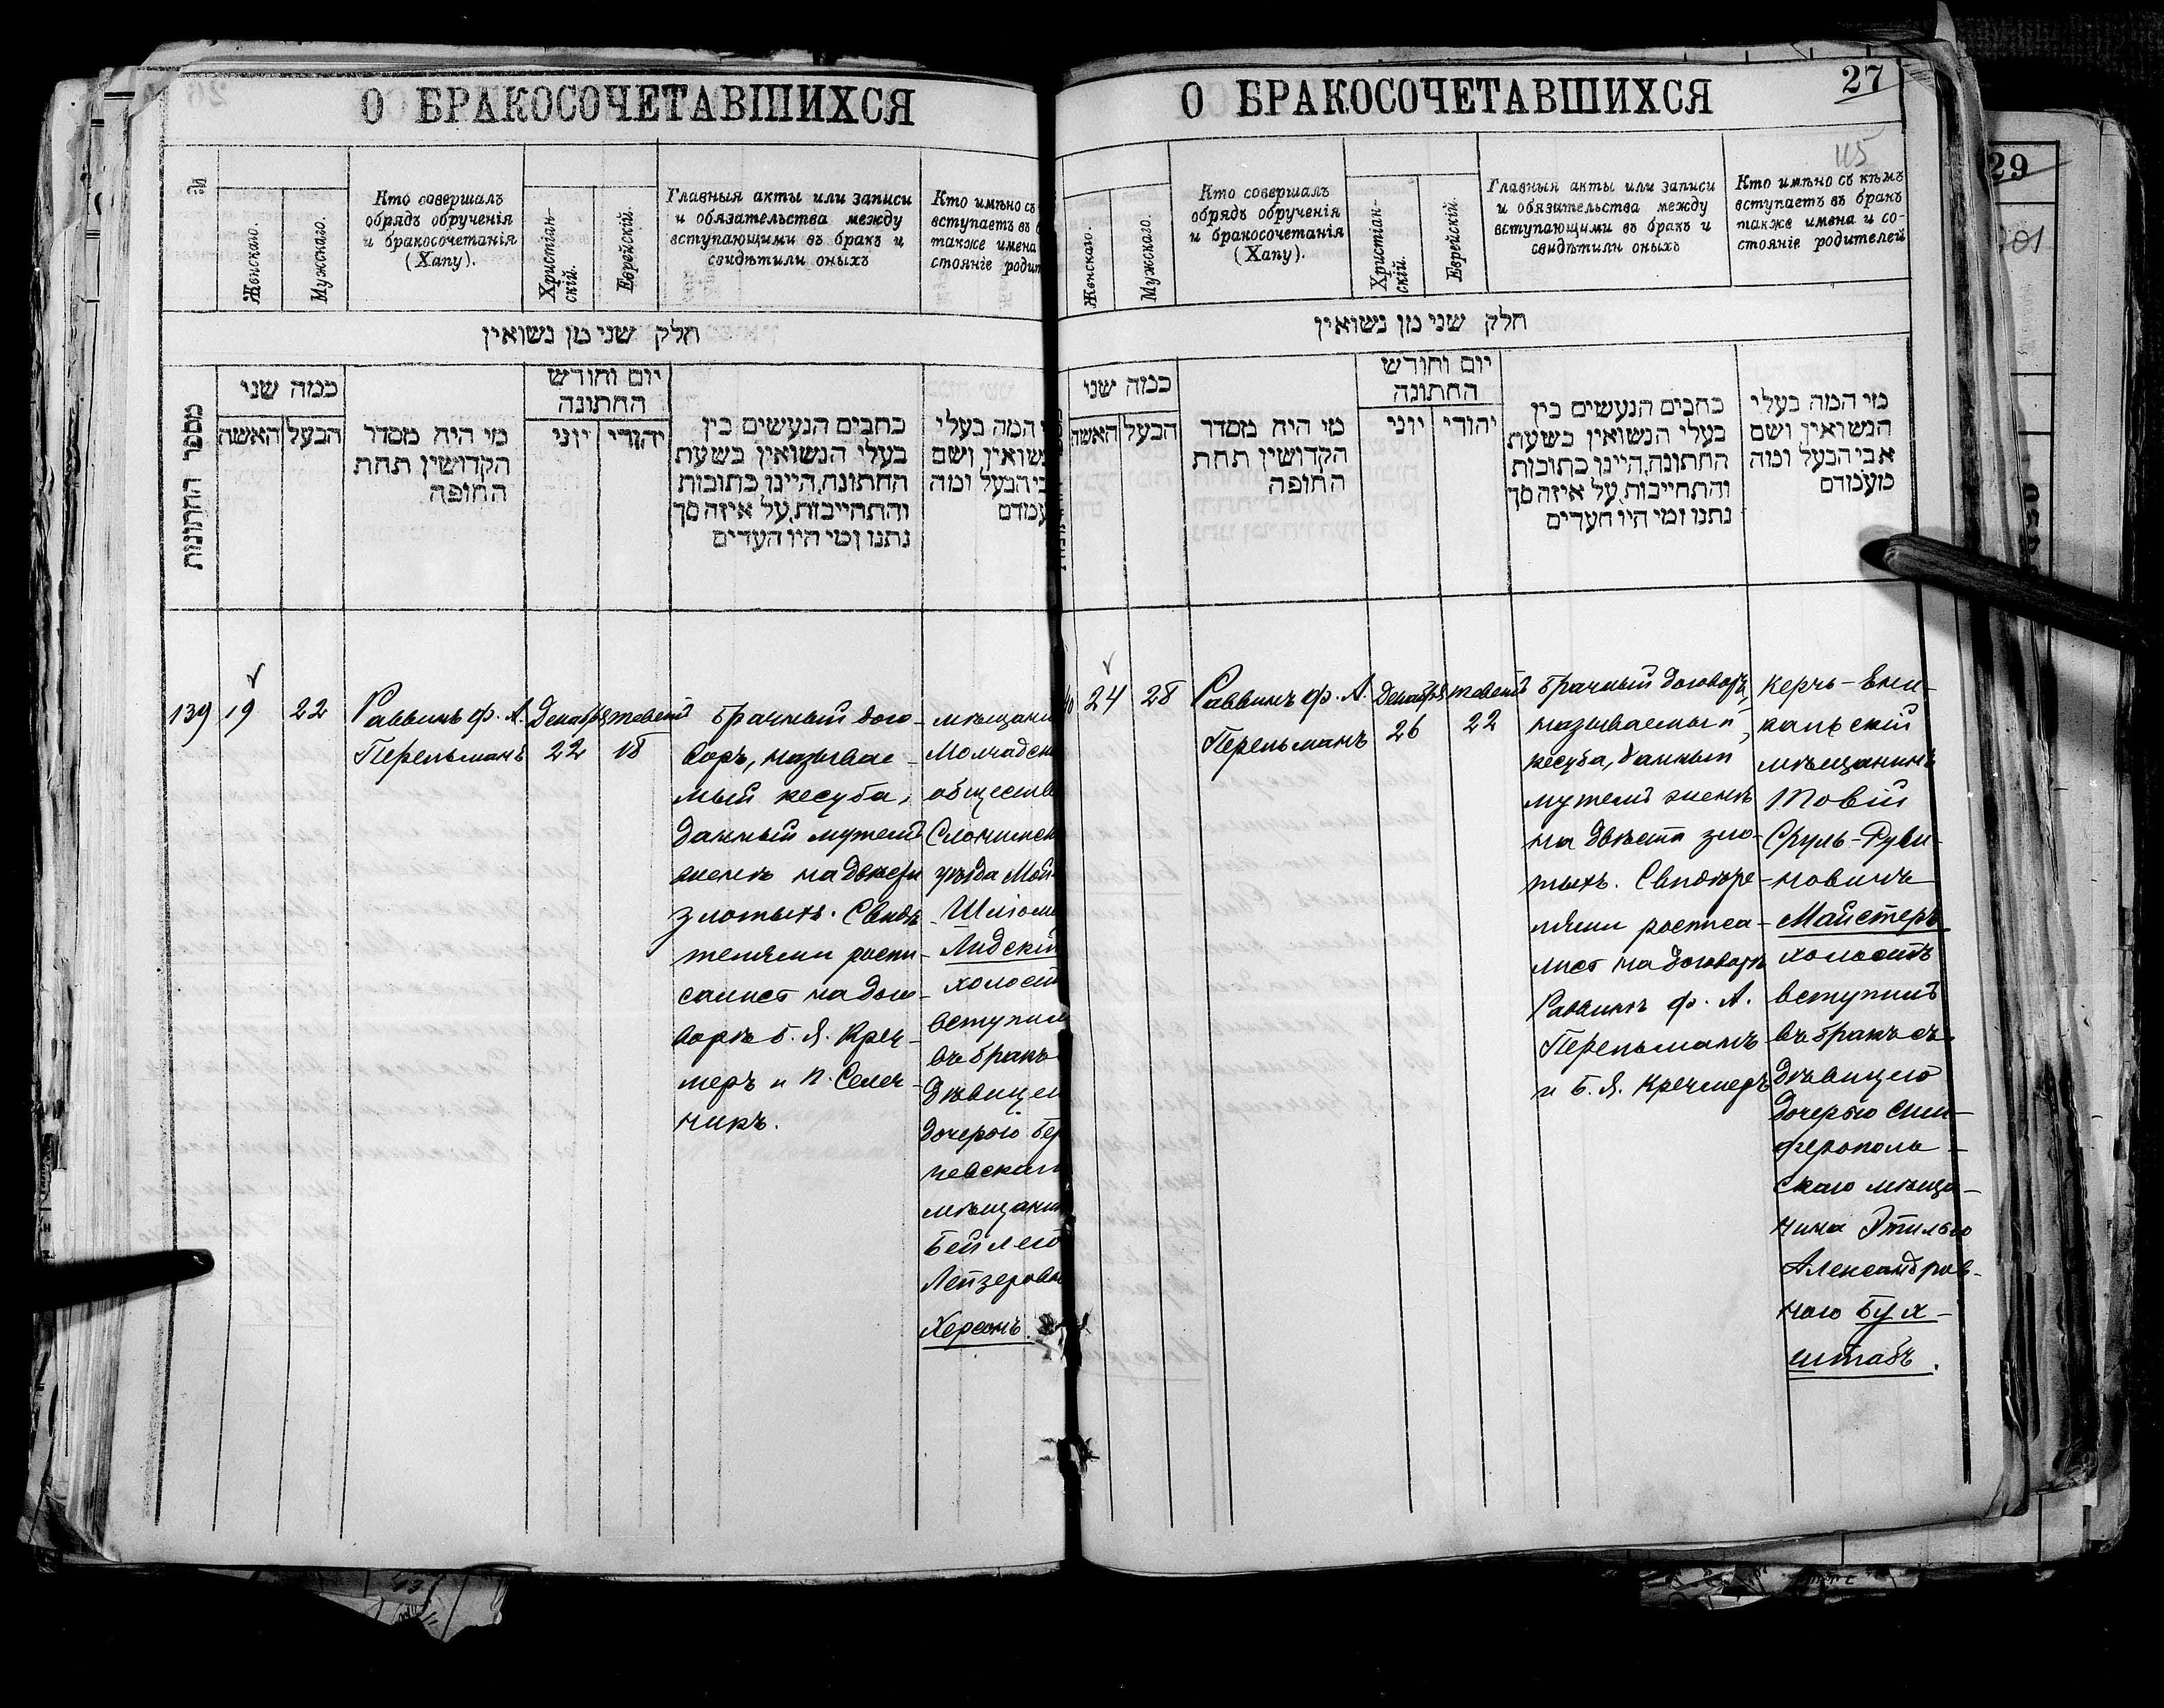 О БРАКОСОЧЕТАВШИХСЯ
№
Женскаго.
Мужскаго.
Кто совершалъ
обрядъ обрученія
и бракосочетанія
(Хапу).
Христіан-
скій.
Еврейскій.
Главныя акты или записи
и обязательства между
вступающими въ бракъ и
свидѣтили оныхъ
Кто имѣно съ
вступаетъ въ
также имена
стояніе роди
חלק שני מן נשואין
מספר החתונות
כמה שני
האשה
הבעל
מי היה מסדר
הקדושין תחת
החופה
יום וחודש
החתונה
יוני
יהודי
כתבים הנעשים בין
בעלי הנשואין בשעת
החתונה, היינו כתובות
והתחייבות, על איזה סך
נתנו ומי היו העדים
המה בעלי
נשואין ושם
בי הבעל ומה
עמדם
139 19 22
Раввинъ ф. А.
Перельманъ
Декабря
22
тевет
18
Брачный дого-
воръ, называе-
мый кесуба,
данный мужемъ
женѣ на двѣсти
злотыхъ. Свидѣ-
телями распи-
сались на дого-
ворѣ Б. Я. Креч-
меръ и
мѣщани
Молчадск
общества
Слонимск
уѣзда Мой
Шліом
Лидскій
холост
вступил
въ бракъ
дѣвицею
дочерью Бер
чевскаго
мѣщани
Бейлею
Лейзеровн
Херсонъ.
О БРАКОСОЧЕТАВШИХСЯ
27
115
Женскаго.
Мужскаго.
Кто совершалъ
обрядъ обрученія
и бракосочетанія
(Хапу).
Христіан-
скій.
Еврейскій.
Главныя акты или записи
и обязательства между
вступающими въ бракъ и
свидѣтили оныхъ
Кто имѣно съ кѣмъ
вступаетъ въ бракъ
также имена и со-
стояніе родителей
חלק שני מן נשואין
כמה שני
האשה
הבעל
מי היה מסדר
הקדושין תחת
החופה
יום וחודש
החתונה
יוני
יהודי
כתבים הנעשים בין
בעלי הנשואין בשעת
החתונה, היינו כתובות
והתחייבות, על איזה סך
נתנו ומי היו העדים
מי המה בעלי
הנשואין ושם
אבי הבעל ומה
מעמדם
24 28
Раввинъ ф. А.
Перельманъ
Декабря
26
тевет
22
Брачный договоръ,
называемый
кесуба, данный
мужемъ женѣ
на двѣсти зло-
тыхъ. Свидѣте-
лями росписа-
лись на договорѣ
Раввинъ ф. А.
Перельманъ
и Б. Я. Кречмеръ
Керчь-Ени-
кальскій
мѣщанинъ
Товій
Сруль-Руви-
новичъ
Майстеръ
холостъ
вступилъ
въ бракъ съ
дѣвицею
дочерью Сим-
ферополь-
скаго мѣща-
нина Этилью
Александров-
ною Бух-
штабъ.
29
101